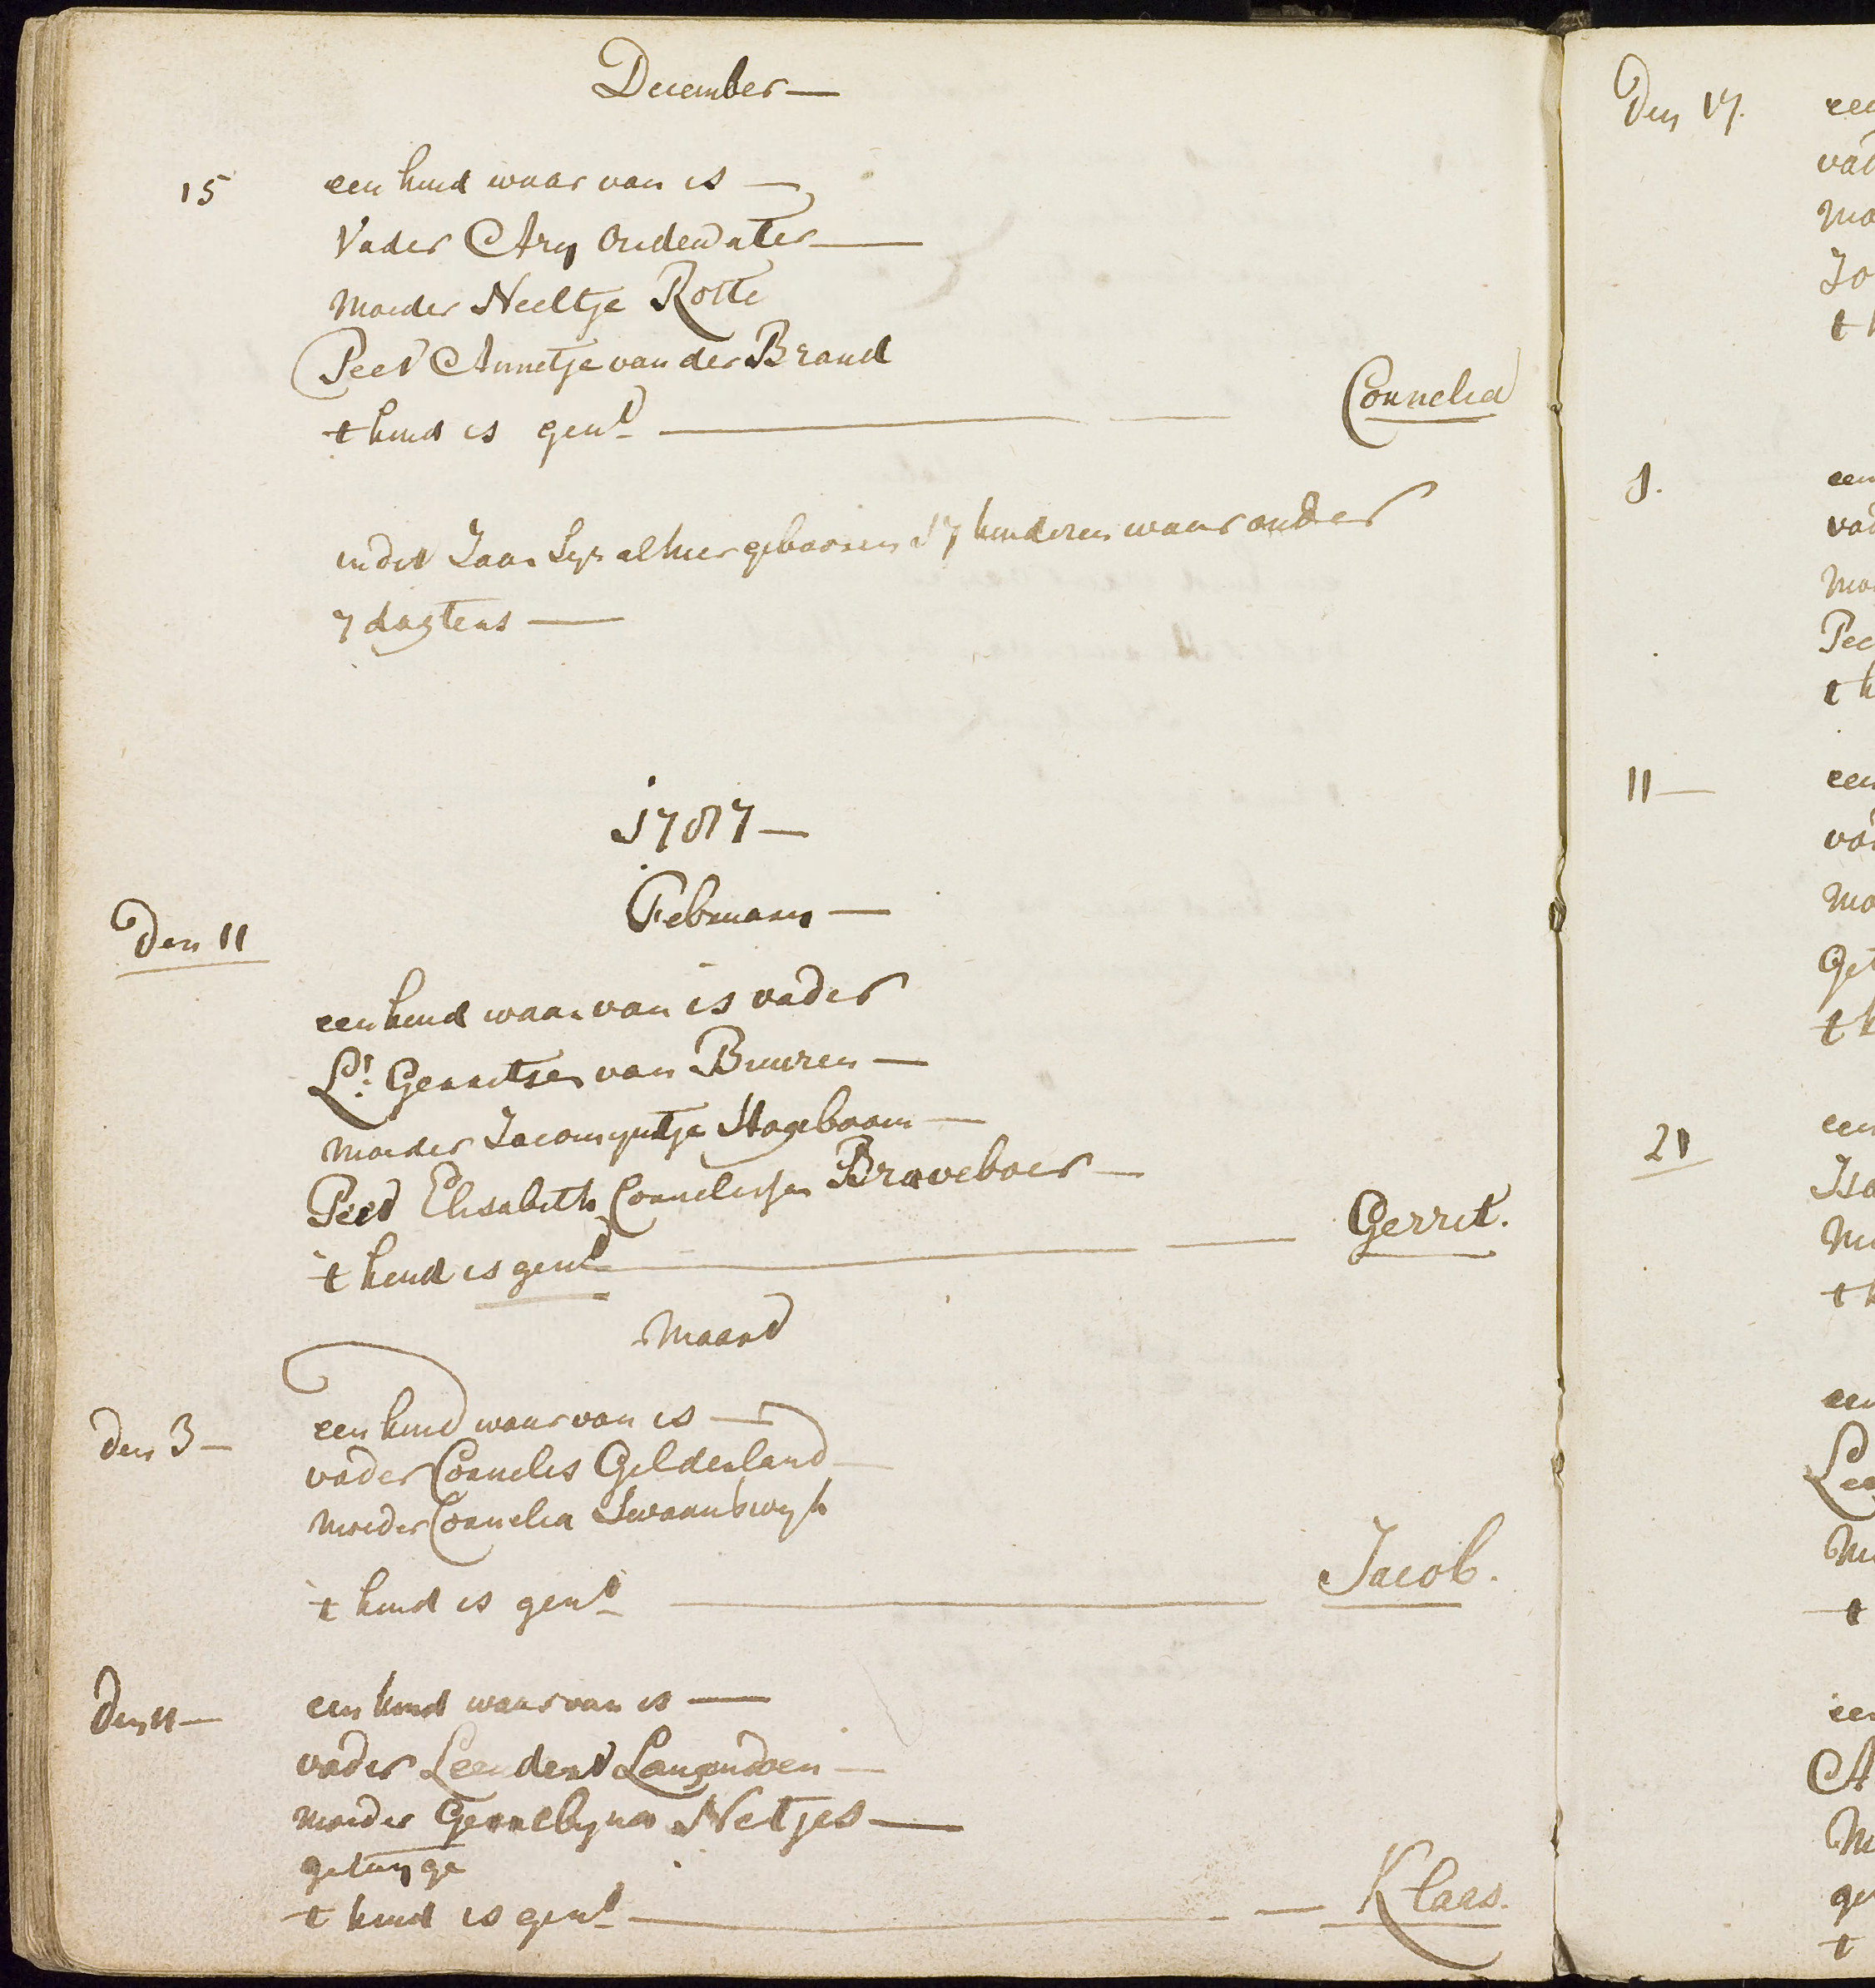 December
15 een kind waar van is
Vader Ary Oudewater
Moeder Neeltje Rotte
Peet Annetje van der Brand
t kind is gend Cornelia
in dit Jaar Syn alhier gebooren 17 kinderen waar onder
7 dogters
1787
Februarij
Den 11
een kind waar van is vader
Lt Gerritse van Buuren
Moeder Jacomyntje Hogeboom
Peet Elisabeth Cornelisse Braveboer
't kind is gend Gerrit.
Maard
den 3 een kind waar van is
vader Cornelis Gelderland
Moeder Cornelia Swaanswyk
't kind is gend Jacob.
den 11 een kind waar van is
vader Leendert Langendoen
moeder Gerrebyna Netjes
getuyge
t kind is gend Klaas.
Den 17.
vad
Mo
Jo
t k
1. een
vad
Moe
Pee
t k
11 een
vad
Mo
Get
t k
21 een
Isa
Mo
t k
een
Lee
Mo
t
een
A
M
ge
t